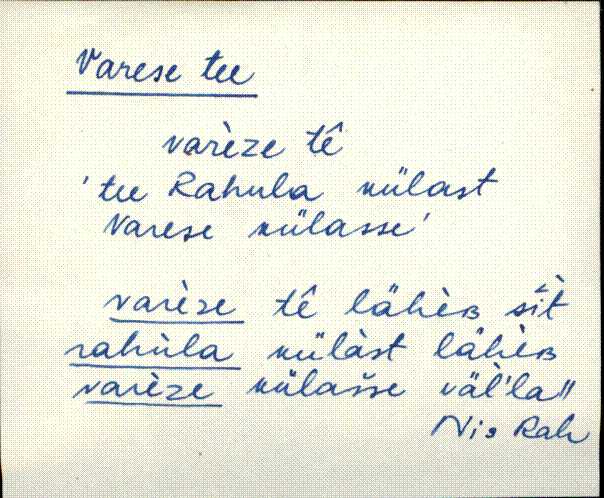 Varese tee
varèze tê
'tee Rahula külast
Varese külasse'
varèze tê lähèʙ sìt
rahùla külàst lähèʙ
varèze külašse väl'la"
Nis Rah